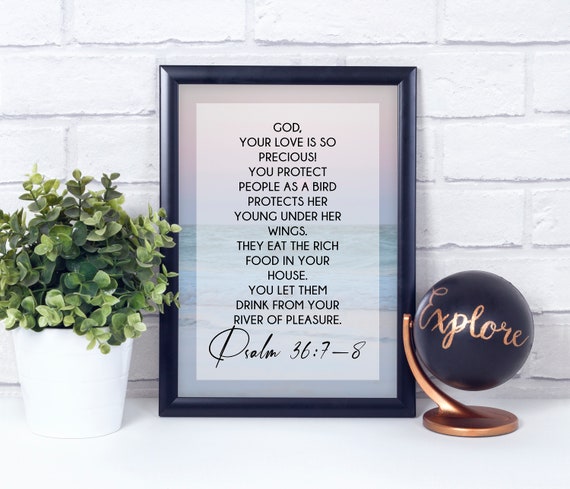 GOD,
YOUR LOVE IS SO
PRECIOUS!
YOU PROTECT
PEOPLE AS A BIRD
PROTECTS HER
YOUNG UNDER HER
WINGS.
THEY EAT THE RICH
FOOD IN YOUR
HOUSE.
YOU LET THEM
DRINK FROM YOUR
RIVER OF PLEASURE.
Psalm 36:7–8
Explore